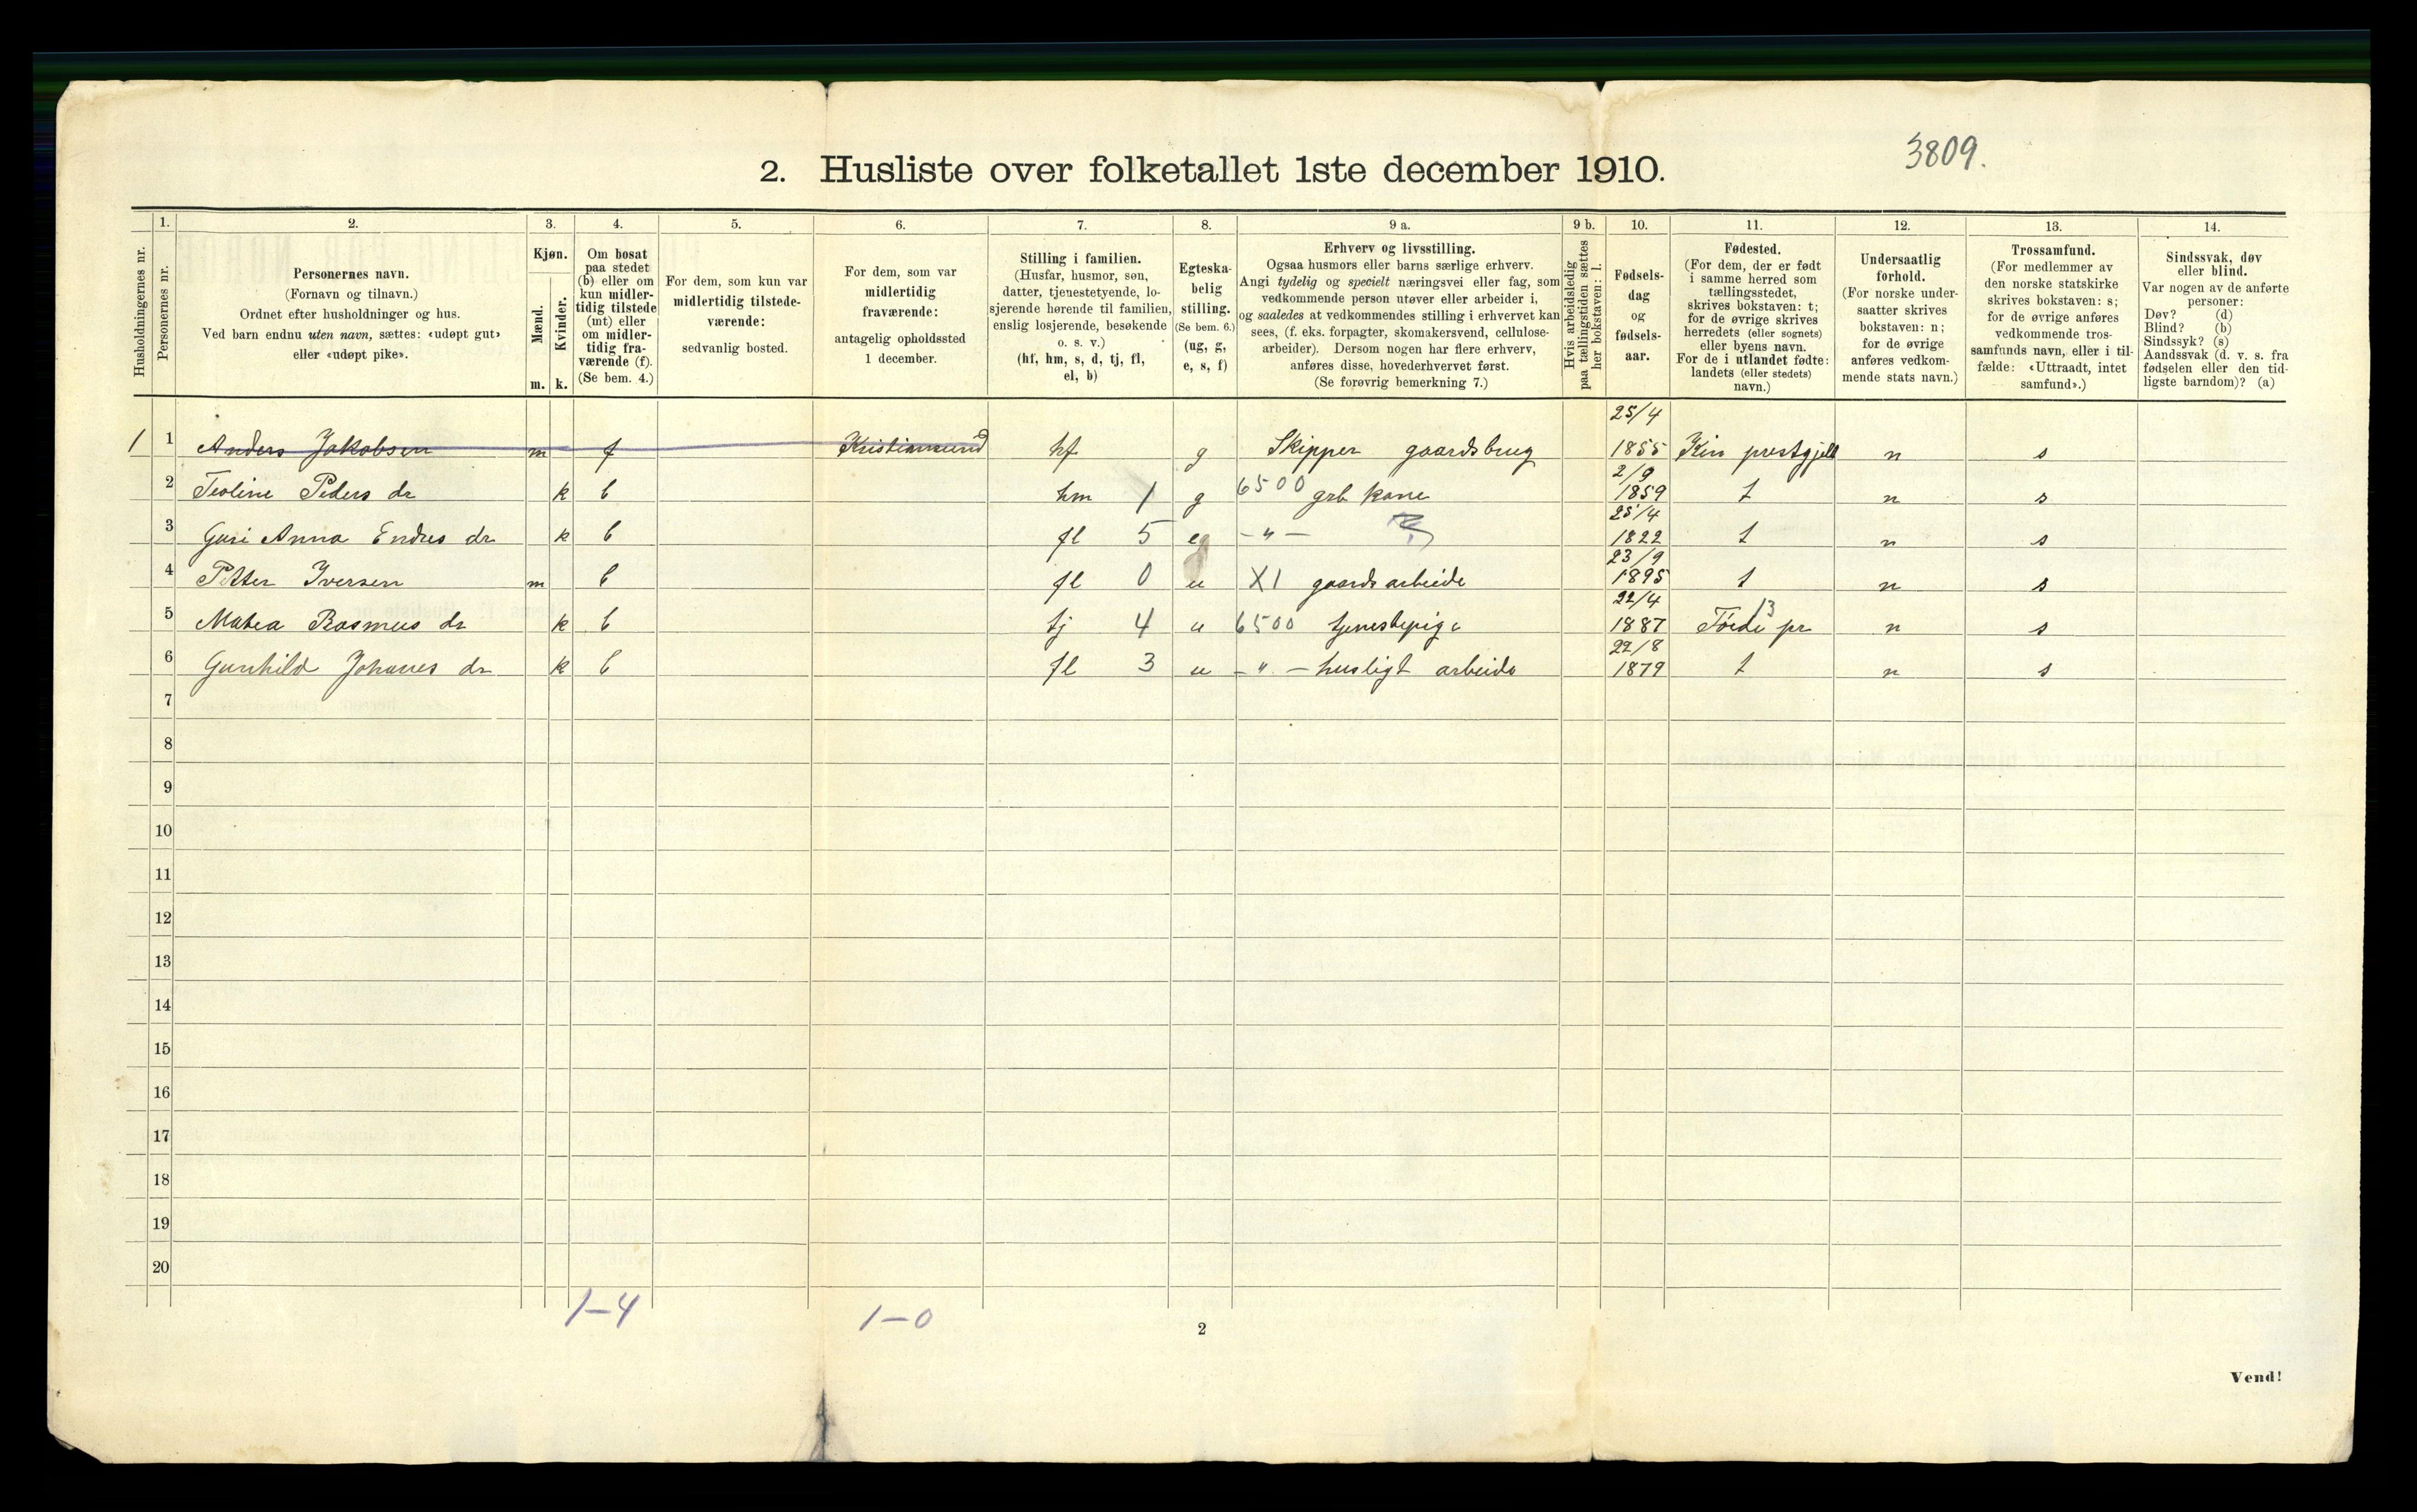 3809.
2. Husliste over folketallet 1ste december 1910.
1. 2. 3. 4. 5. 6. 7. 8. 9 a. 9 b. 10. 11. 12. 13. 14.
Husholdningernes nr.
Personernes nr.
Personernes navn.
(Fornavn og tilnavn.)
Ordnet efter husholdninger og hus.
Ved barn endnu uten navn, sættes: «udøpt gut»
eller «udøpt pike».
Kjøn.
Mænd.
Kvinder.
m. k.
Om bosat
paa stedet
(b) eller om
kun midler-
tidig tilstede
(mt) eller
om midler-
tidig fra-
værende (f).
(Se bem. 4.)
For dem, som kun var
midlertidig tilstede-
værende:
sedvanlig bosted.
For dem, som var
midlertidig
fraværende:
antagelig opholdssted
1 december.
Stilling i familien.
(Husfar, husmor, søn,
datter, tjenestetyende, lo-
sjerende hørende til familien,
enslig losjerende, besøkende
o. s. v.)
(hf, hm, s, d, tj, fl,
el, b)
Egteska-
belig
stilling.
(Se bem. 6.)
(ug, g,
e, s, f)
Erhverv og livsstilling.
Ogsaa husmors eller barns særlige erhverv.
Angi tydelig og specielt næringsvei eller fag, som
vedkommende person utøver eller arbeider i,
og saaledes at vedkommendes stilling i erhvervet kan
sees, (f. eks. forpagter, skomakersvend, cellulose-
arbeider). Dersom nogen har flere erhverv,
anføres disse, hovederhvervet først.
(Se forøvrig bemerkning 7.)
Hvis arbeidsledig
paa tællingstiden sættes
her bokstaven: l.
Fødsels-
dag
og
fødsels-
aar.
Fødested.
(For dem, der er født
i samme herred som
tællingsstedet,
skrives bokstaven: t;
for de øvrige skrives
herredets (eller sognets)
eller byens navn.
For de i utlandet fødte:
landets (eller stedets)
navn.)
Undersaatlig
forhold.
(For norske under-
saatter skrives
bokstaven: n;
for de øvrige
anføres vedkom-
mende stats navn.)
Trossamfund.
(For medlemmer av
den norske statskirke
skrives bokstaven: s;
for de øvrige anføres
vedkommende tros-
samfunds navn, eller i til-
fælde: «Uttraadt, intet
samfund».)
Sindssvak, døv
eller blind.
Var nogen av de anførte
personer:
Døv? (d)
Blind? (b)
Sindssyk? (s)
Aandssvak (d. v. s. fra
fødselen eller den tid-
ligste barndom)? (a)
1 1 Anders Jakobsen m f Kristiansund hf g Skipper gaardsbrug 25/4 1855 Kin prestgjeld n s
2 Teoline Peders dr k b hm 1 g 6500 grb kone 2/9 1859 t n s
3 Guri Anna Endres dr k b fl 5 e -"- 25/4 1822 t n s
4 Petter Iversen m b fl 0 u XI gaardsarbeide 23/9 1895 t n s
5 Matea Rasmus dr k b tj 4 u 6500 tjenestepige 22/4 1887 Førde pr 13 n s
6 Gunhild Johanes dr k b fl 3 u -"- husligt arbeide 22/8 1879 t n s
7
8
9
10
11
12
13
14
15
16
17
18
19
20
1–4 1–0
2
Vend!